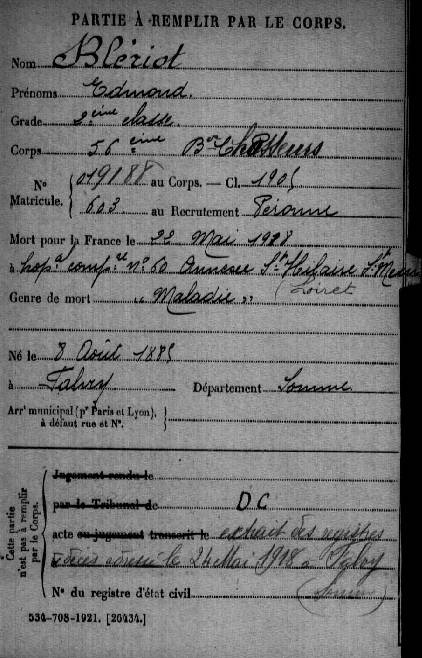 PARTIE À REMPLIR PAR LE CORPS.
Nom Blériot
Prénoms Edmond.
Grade 2ème classe
Corps 56ème Bon Chasseurs
N° Matricule. 019188 au Corps. — Cl. 1905
603 au Recrutement Péronne
Mort pour la France le 22 Mai 1918
à hopal compre n° 50 Annexe St Hilaire St Mesmin
(Loiret
Genre de mort „ Maladie „
Né le 8 Août 1885
à Falvy Département Somme
Arrt municipal (pr Paris et Lyon),
à défaut rue et N°.
Cette partie n'est pas à remplir par le Corps.
Jugement rendu le
par le Tribunal de D C
acte ou jugement transcrit le extrait des registres
de décès adressé le 24 Mai 1918 à Falvy
(Somme
N° du registre d'état civil
534-708-1921. [26434.]